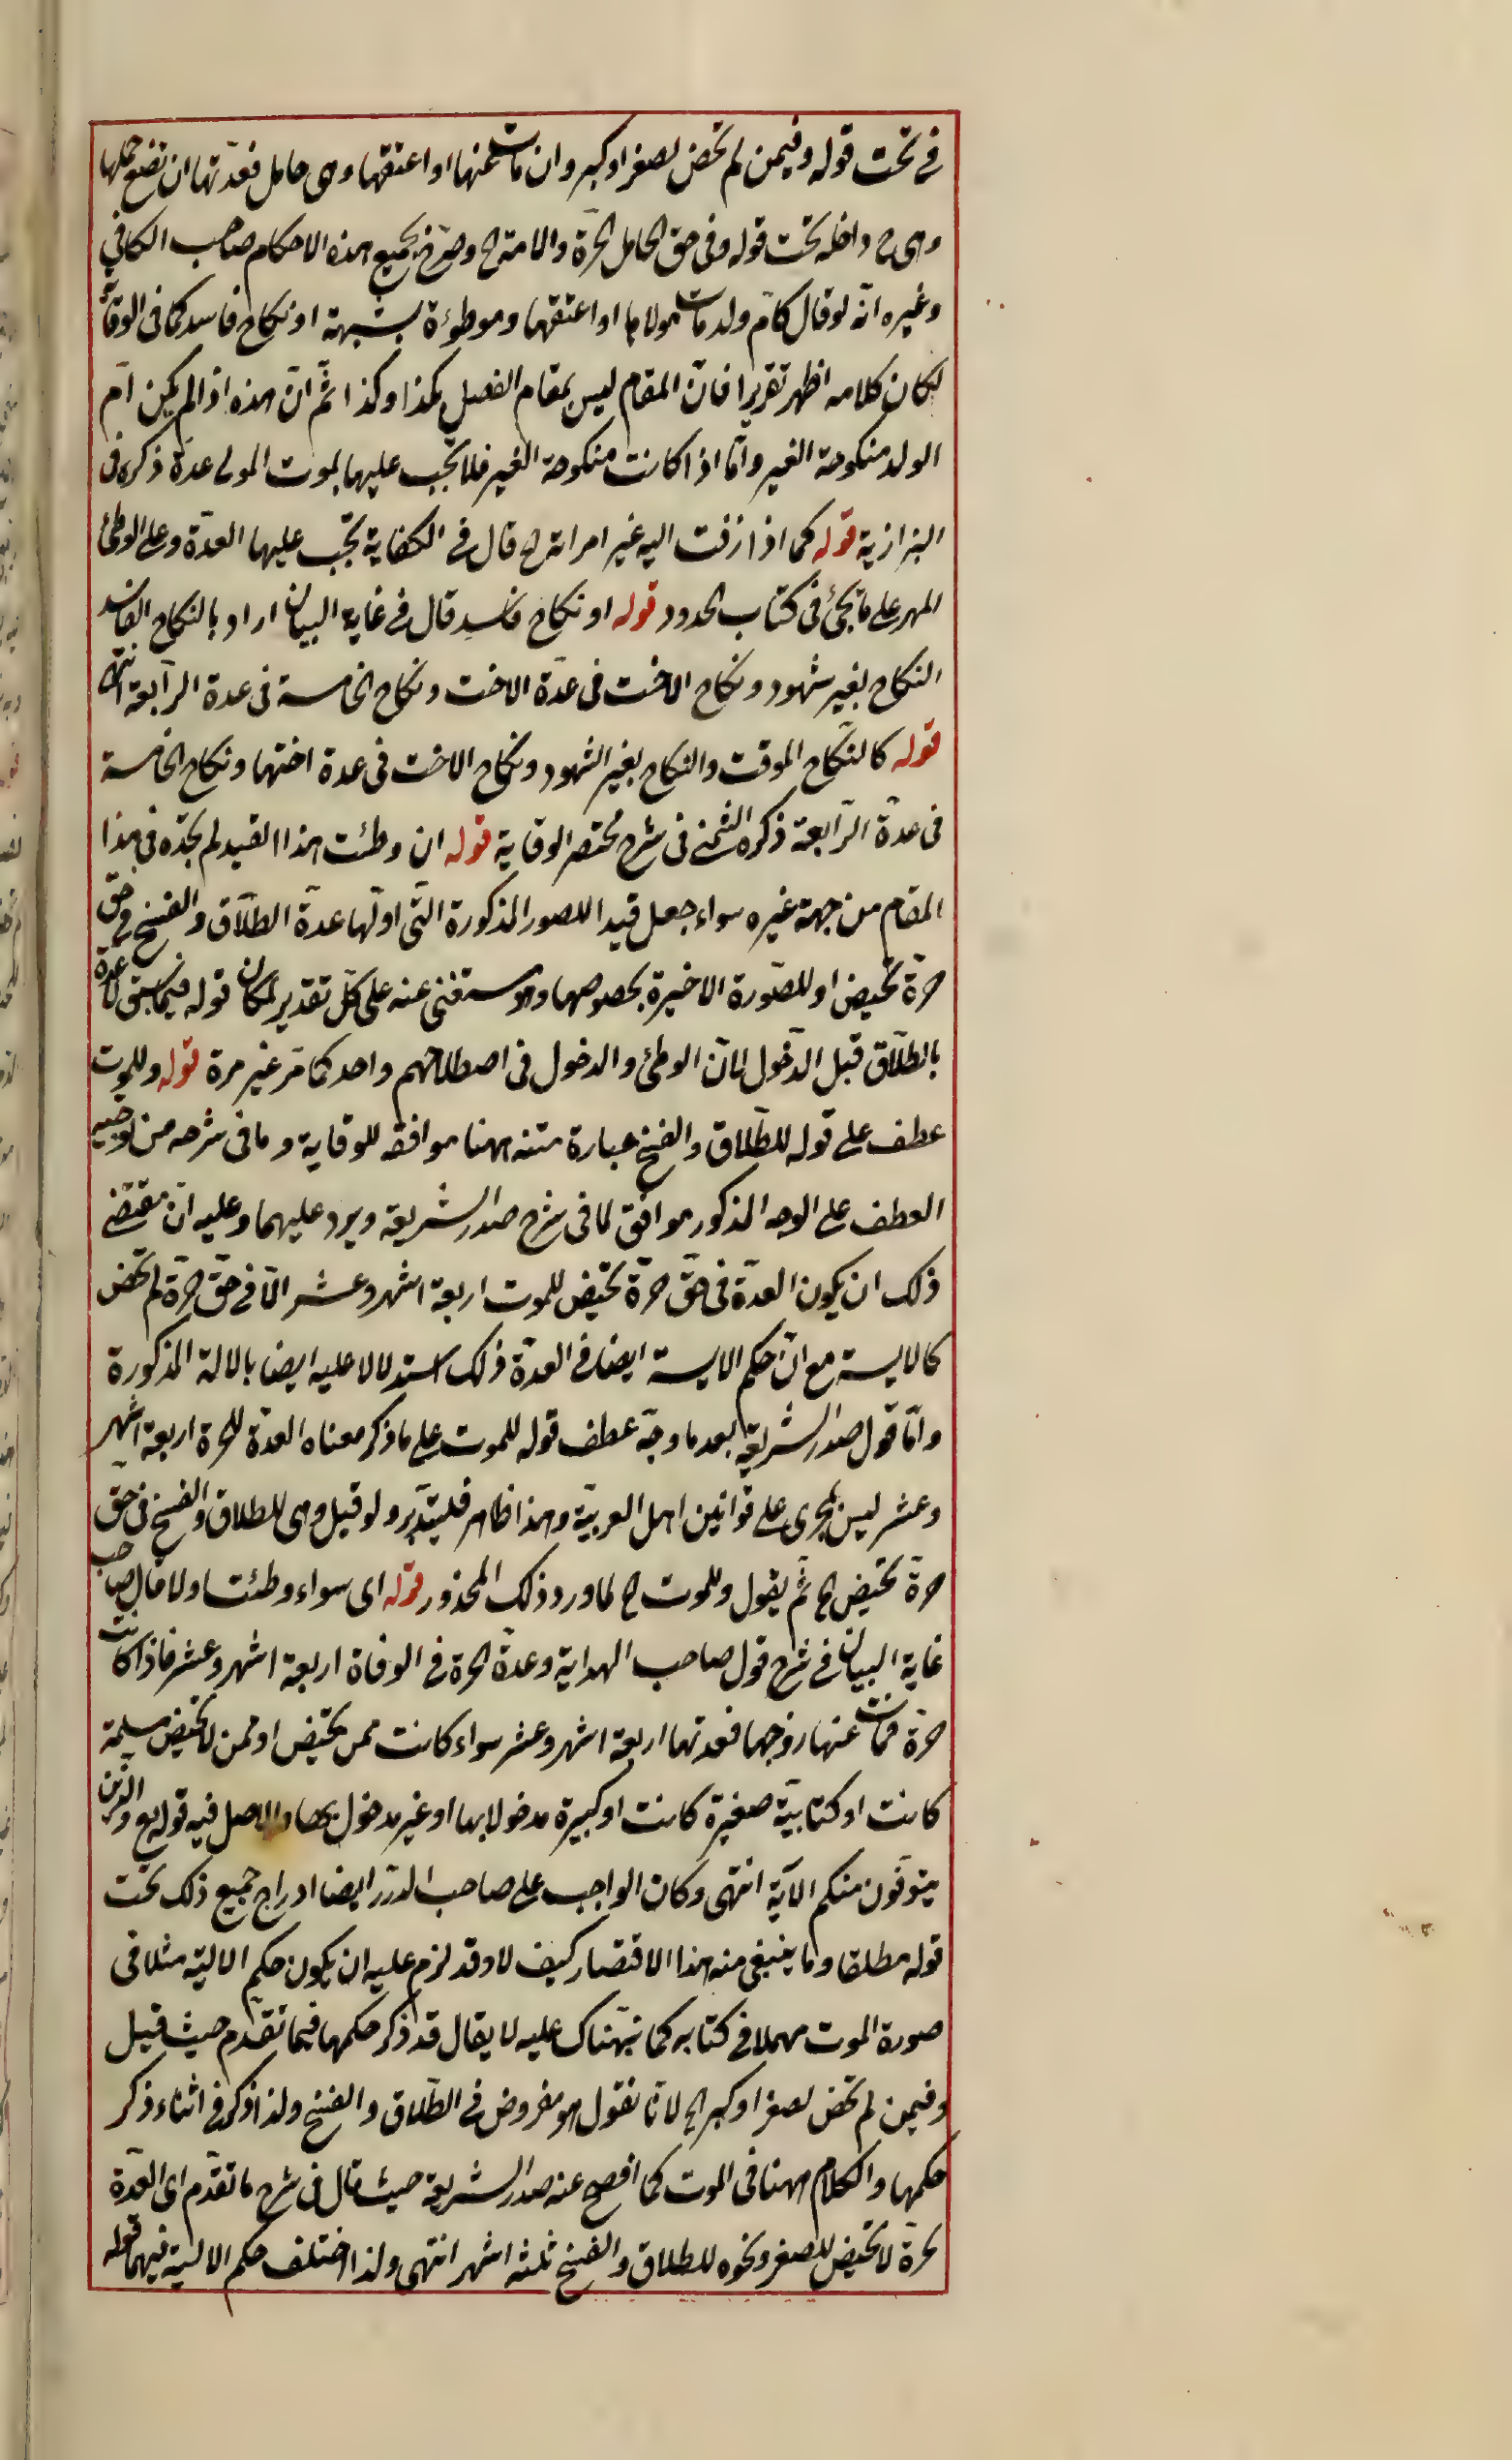 فى تحت قوله وفيمن لم تحض لصغر او كبر وان مات عنها او اعتقها وهى حامل فعدّتها ان تضع حملها
وهى ح داخله تحت قوله وفى حق الحامل الحرّة والامة الخ وصرّح بجميع هذه الاحكام صاحب الكافى
وغيره انّه لو قال كامّ ولد مات مولاها او اعتقها وموطوءة بشبهة او نكاح فاسد كما فى الوقاية
لكان كلامه اظهر تقريرا فانّ المقام ليس بمقام الفصل بكذا وكذا ثمّ انّ هذه اذا لم يكن امّ
الولد منكوحة الغير وامّا اذا كانت منكوحة الغير فلا تجب عليها بموت المولى عدة ذكره فى
البزازية قوله كما اذا زفت اليه غير امراته الخ قال فى الكفاية تجب عليها العدّة وعلى الوطئ
المهر على ما يجئ فى كتاب الحدود قوله او نكاح فاسد قال فى غاية البيان اراد بالنكاح الفاسد
النكاح بغير شهود ونكاح الاخت فى عدّة الاخت ونكاح الخامسة فى عدة الرّابعة انتهى
قوله كالنكاح الموقت والنكاح بغير الشهود ونكاح الاخت فى عدة اختها ونكاح الخامسة
فى عدّة الرّابعة ذكره الشمنى فى شرح مختصر الوقاية قوله ان وطئت هذا القيد لم نجده فى هذا
المقام من جهة غيره سواء جعل قيدا للصور المذكورة التّى اولها عدّة الطلّاق والفسخ فى حقّ
حرّة تحيض او للصّورة الاخيرة بخصوصها وهو مستغنى عنه على كلّ تقدير لمكان قوله فيما سبق لا عدة
بالطلّاق قبل الدّخول لانّ الوطئ والدخول فى اصطلاحهم واحد كما مرّ غير مرة قوله وللموت
عطف على قوله للطّلاق والفسخ عبارة متنه ههنا موافقه للوقاية وما فى شرحه من توجيه
العطف على الوجه المذكور موافق لما فى شرح صدر الشريعة ويرد عليهما وعليه انّ مقتضى
ذلك ان يكون العدّة فى حقّ حرّة تحيض للموت اربعة اشهر وعشر الّا فى حقّ حرّة لم تحض
كالايسة مع انّ حكم الايسة ايضا فى العدّة ذلك استدلالا عليه ايضا بالالة المذكورة
وامّا قول صدر الشريعة بعد ما وجّه عطف قوله للموت على ما ذكر معناه العدّة للحرة اربعة اشهر
وعشر ليس بجرى على قوانين اهل العربيّة وهذا ظاهر فليتدّبر ولو قيل وهى للطلاق والفسخ فى حق
حرّة تحيض الخ ثمّ يقول وللموت الخ لما ورد ذلك المحذور قوله اى سواء وطئت اولا قال صاحب
غاية البيان فى شرح قول صاحب الهداية وعدّة الحرة فى الوفاة اربعة اشهر وعشر فاذا كانت
حرّة فمات عنها زوجها فعدتها اربعة اشهر وعشر سواء كانت ممن تحيض او ممن لا تحيض مسلمة
كانت او كتابيّة صغيرة كانت او كبيرة مدخولا بها او غير مدخول بها والاصل فيه قوله تع والذين
يتوفّون منكم الآية انتهى وكان الواجب على صاحب الدرر ايضا ادراج جميع ذلك تحت
قوله مطلقا وما ينبغى منه هذا الاقتصار كيف لا وقد لزم عليه ان يكون حكم الايسة مثلا فى
صورة الموت مهملا فى كتابه كما نبّهناك عليه لا يقال قد ذكر حكمها فيما تقدّم حيث قيل
وفيمن لم تحض لصغر او كبر الخ لانّا نقول هو مفروض فى الطّلاق والفسخ ولذا ذكر فى اثناء ذكر
حكمها والكلام ههنا فى الموت كما افصح عنه صدر الشريعة حيث قال فى شرح ما تقدّم اى العدّة
لحرّة لا تحيض للصغر ونحوه للطلاق والفسخ ثلثه اشهر انتهى ولذا اختلف حكم الايسة فيهما قوله